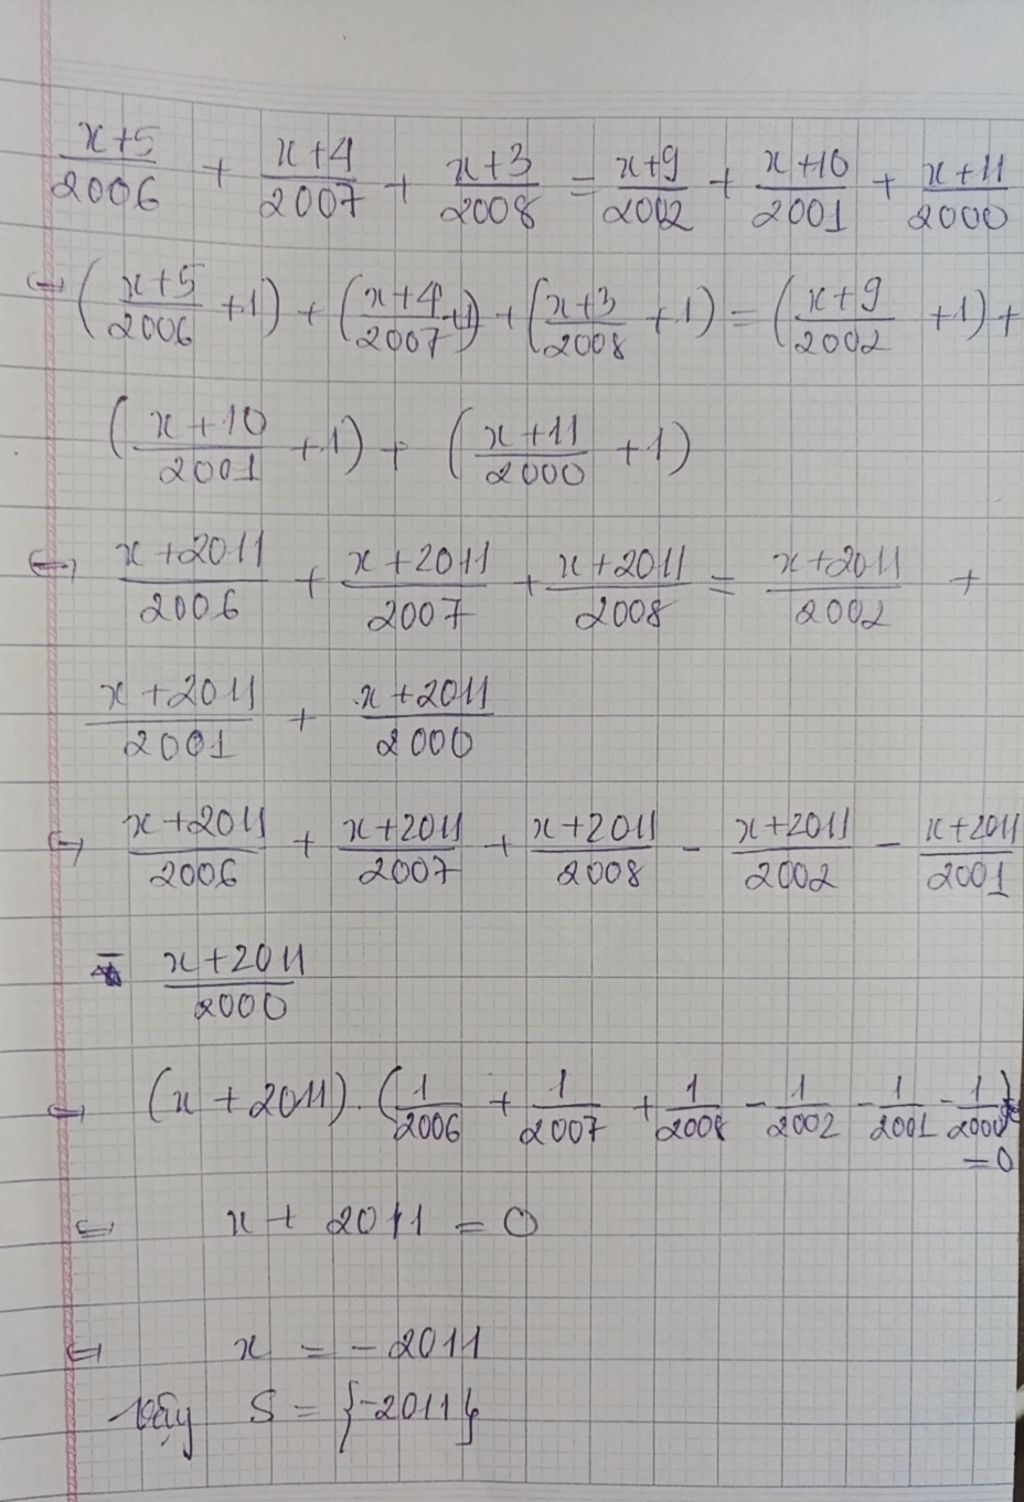 (x+5)/2006 + (x+4)/2007 + (x+3)/2008 = (x+9)/2002 + (x+10)/2001 + (x+11)/2000
⇔ ((x+5)/2006 + 1) + ((x+4)/2007 + 1) + ((x+3)/2008 + 1) = ((x+9)/2002 + 1) +
((x+10)/2001 + 1) + ((x+11)/2000 + 1)
⇔ (x+2011)/2006 + (x+2011)/2007 + (x+2011)/2008 = (x+2011)/2002 +
(x+2011)/2001 + (x+2011)/2000
⇔ (x+2011)/2006 + (x+2011)/2007 + (x+2011)/2008 - (x+2011)/2002 - (x+2011)/2001
- (x+2011)/2000
⇔ (x + 2011) . (1/2006 + 1/2007 + 1/2008 - 1/2002 - 1/2001 - 1/2000)
= 0
⇔ x + 2011 = 0
⇔ x = -2011
Vậy S = {-2011}